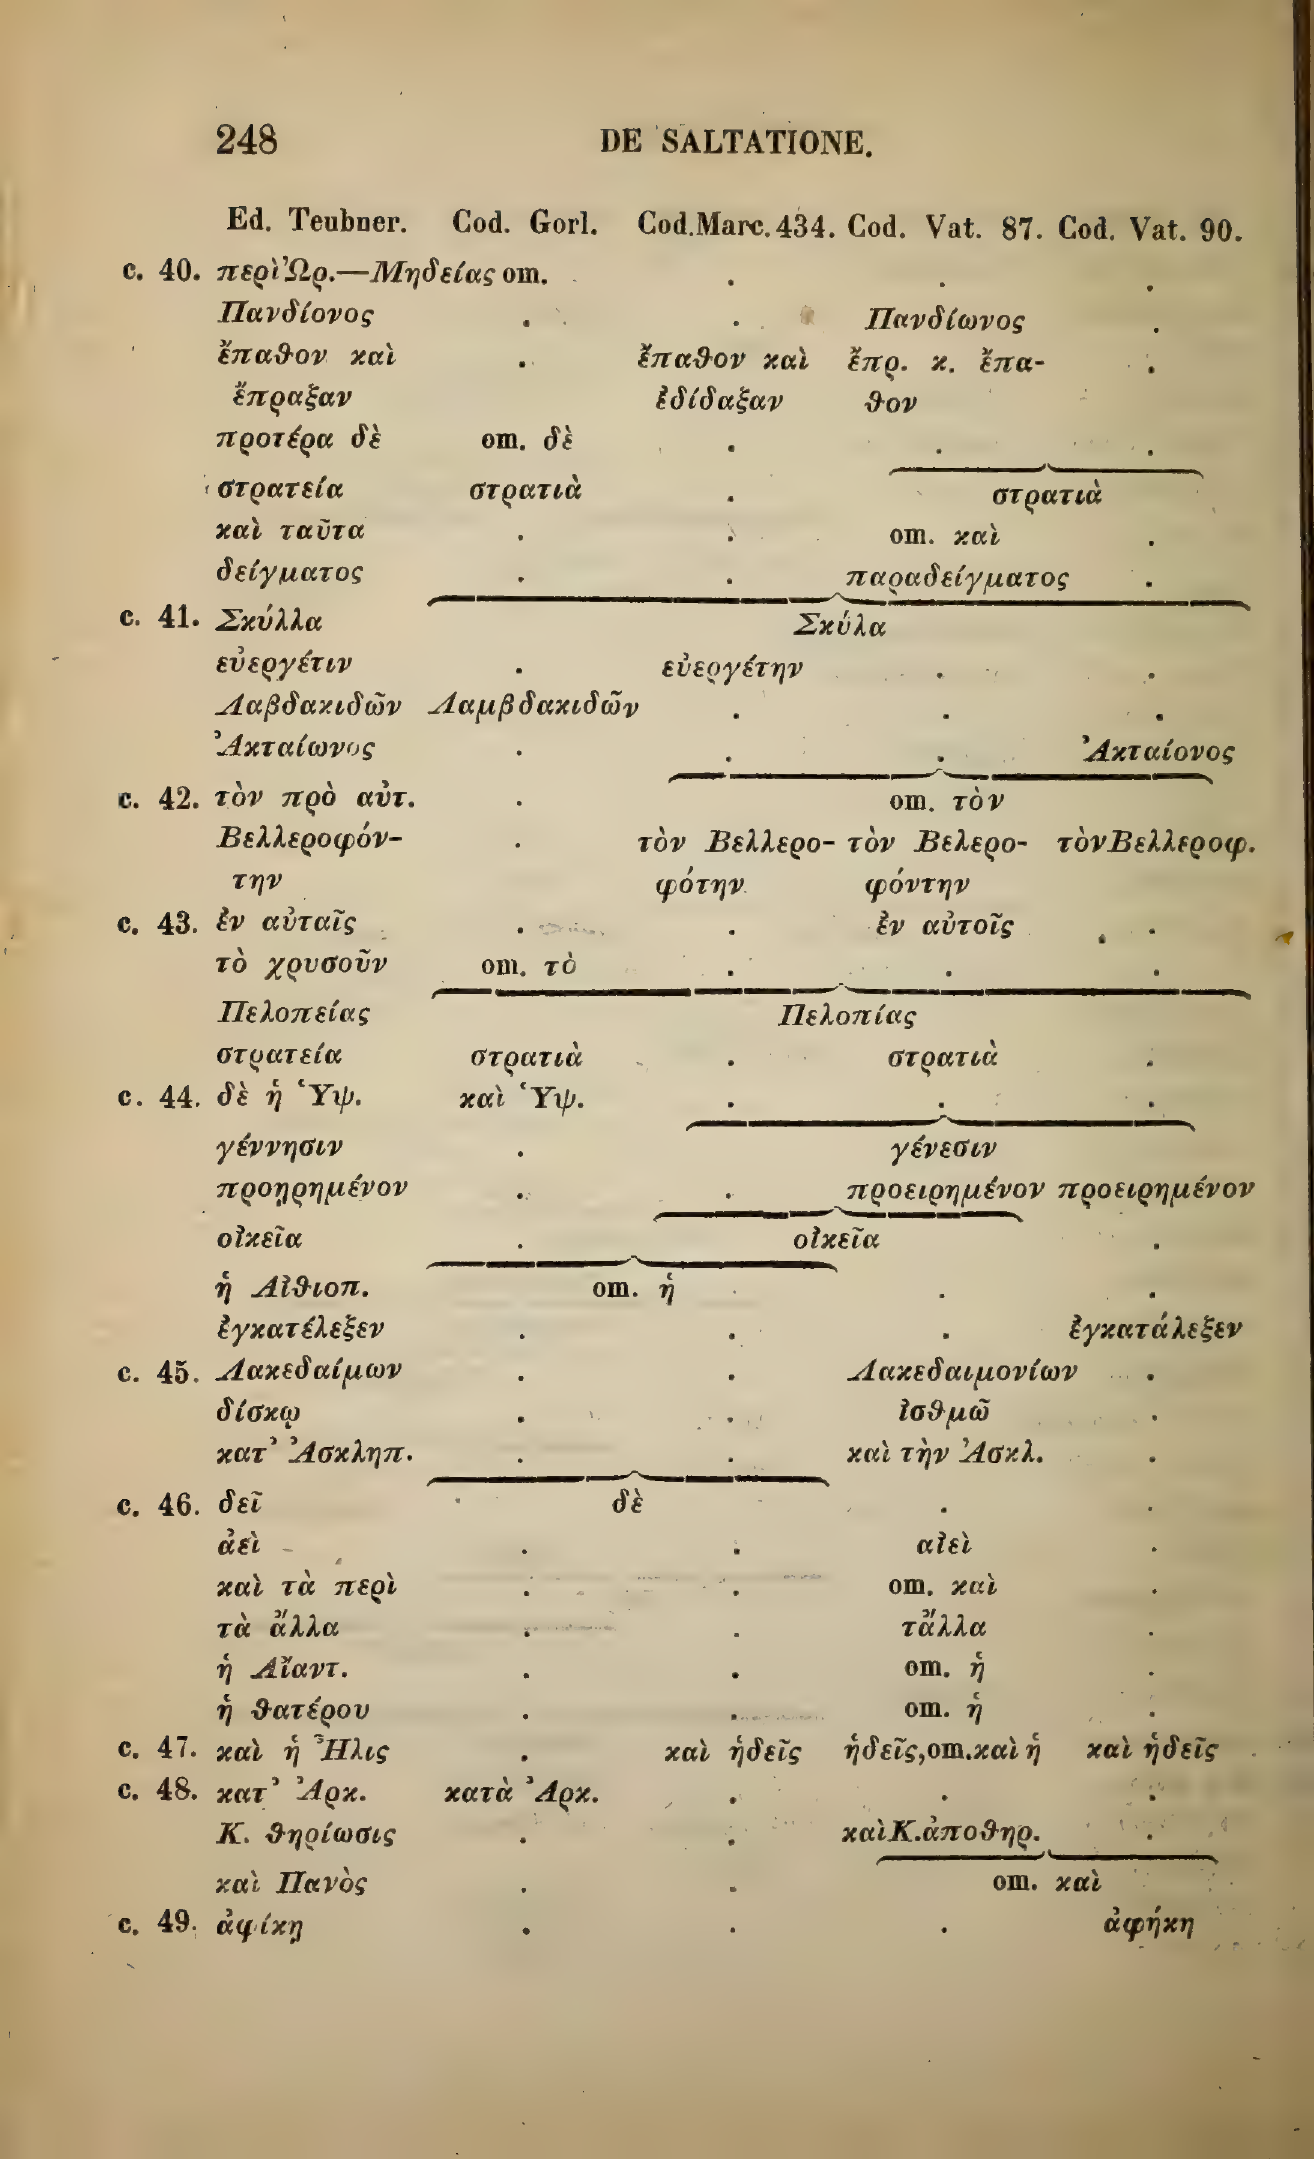 248 DE SALTATIONE.
Ed. Teubner. Cod. Gorl. Cod. Marc. 434. Cod. Vat. 87. Cod. Vat. 90.
c. 40. περὶ Ὠρ.—Μηδείας om. . . .
Πανδίονος . . Πανδίωνος .
ἔπαθον καὶ . ἔπαθον καὶ ἔπρ. κ. ἔπα- .
ἔπραξαν ἐδίδαξαν θον
προτέρα δὲ om. δὲ . . .
στρατεία στρατιὰ . στρατιὰ
καὶ ταῦτα . . om. καὶ .
δείγματος . . παραδείγματος .
c. 41. Σκύλλα Σκύλα
εὐεργέτιν . εὐεργέτην . .
Λαβδακιδῶν Λαμβδακιδῶν . . .
Ἀκταίωνος . . . Ἀκταίονος
c. 42. τὸν πρὸ αὐτ. . om. τὸν
Βελλεροφόν- . τὸν Βελλερο- τὸν Βελερο- τὸν Βελλεροφ.
την φότην φόντην
c. 43. ἐν αὐταῖς . . ἐν αὐτοῖς .
τὸ χρυσοῦν om. τὸ . . .
Πελοπείας Πελοπίας
στρατεία στρατιὰ . στρατιὰ .
c. 44. δὲ ἡ Ὑψ. καὶ Ὑψ. . . .
γέννησιν . γένεσιν
προῃρημένον . . προειρημένον προειρημένον
οἰκεῖα . οἰκεῖα .
ἡ Αἰθιοπ. om. ἡ . .
ἐγκατέλεξεν . . . ἐγκατάλεξεν
c. 45. Λακεδαίμων . . Λακεδαιμονίων .
δίσκῳ . . ἰσθμῶ .
κατ᾽ Ἀσκληπ. . . καὶ τὴν Ἀσκλ. .
c. 46. δεῖ δὲ . .
ἀεὶ . . αἰεὶ .
καὶ τὰ περὶ . . om. καὶ .
τὰ ἄλλα . . τἄλλα .
ἡ Αἴαντ. . . om. ἡ .
ἡ θατέρου . . om. ἡ .
c. 47. καὶ ἡ Ἦλις . καὶ ἡδεῖς ἡδεῖς, om. καὶ ἡ καὶ ἡδεῖς
c. 48. κατ᾽ Ἀρκ. κατὰ Ἀρκ. . . .
Κ. θηρίωσις . . καὶ Κ. ἀποθηρ. .
καὶ Πανὸς . . om. καὶ
c. 49. ἀφίκῃ . . . ἀφήκη